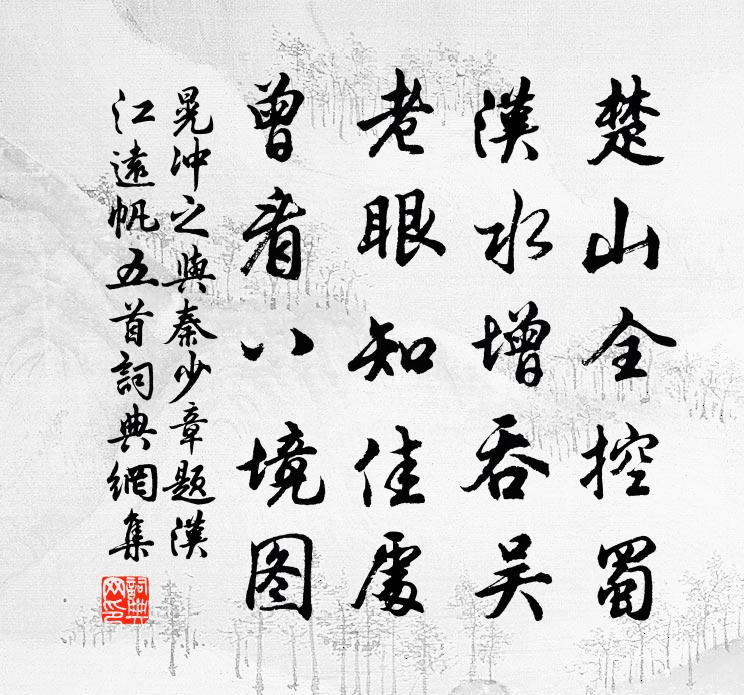 楚山全控蜀
漢水增吞吴
老眼知佳處
曾看八境图
晁冲之與秦少章題漢
江遠帆五首詞典網集
詞典
网印